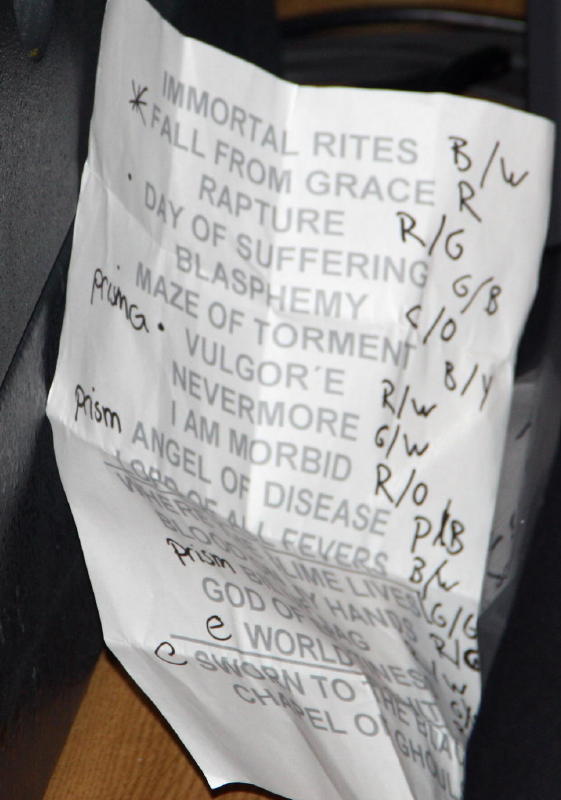 IMMORTAL RITES B/W
* FALL FROM GRACE R
RAPTURE R/G
· DAY OF SUFFERING G/B
BLASPHEMY C/O
MAZE OF TORMENT B/Y
prisma · VULGOR´E R/W
NEVERMORE G/W
I AM MORBID R/O
prism ANGEL OF DISEASE P/B
LORD OF ALL FEVERS B/W
WHERE SLIME LIVES G/G
prism BLOODY HANDS R/G
GOD OF
e WORLD
e SWORN TO THE BLACK
CHAPEL OF GHOUL